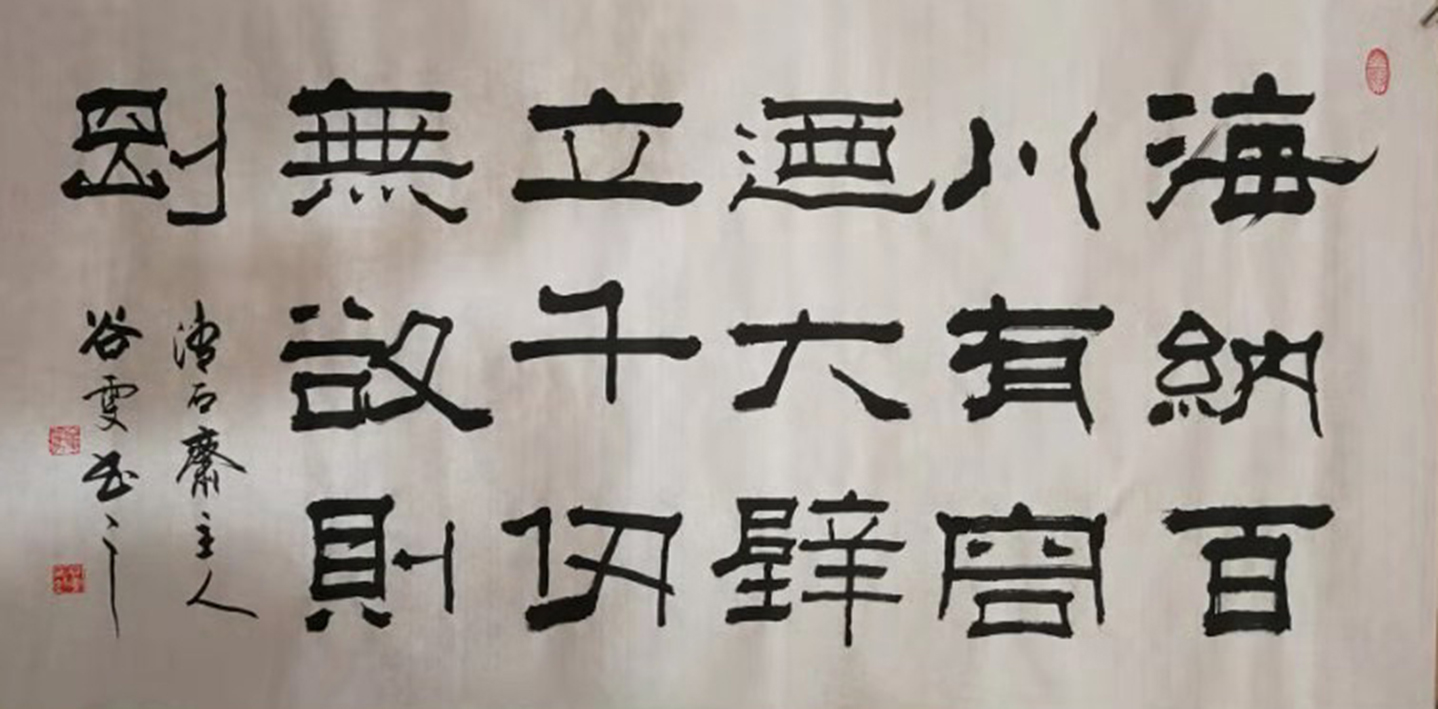 海納百
川有容
迺大壁
立千仞
無欲則
剛
石齋主人
谷雯书之